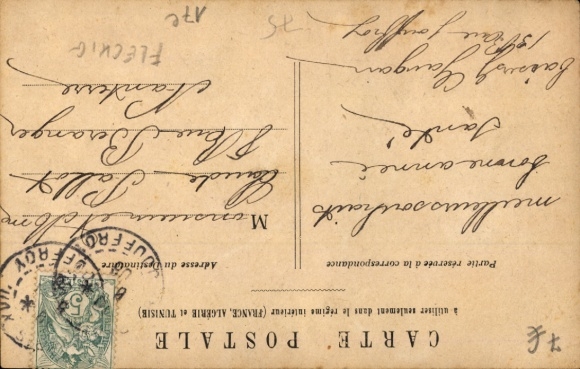 CARTE POSTALE
à utiliser seulement dans le régime intérieur (FRANCE, ALGÉRIE et TUNISIE)
Partie réservée à la correspondance
Adresse du Destinataire
meilleurs souhaits
bonne année
santé
baisers
13 Rue Jouffroy
Monsieur et Mme
Claude Pallot
Rue Béranger
Nanterre
FLECHIG
17e
75
JOUFFROY
5